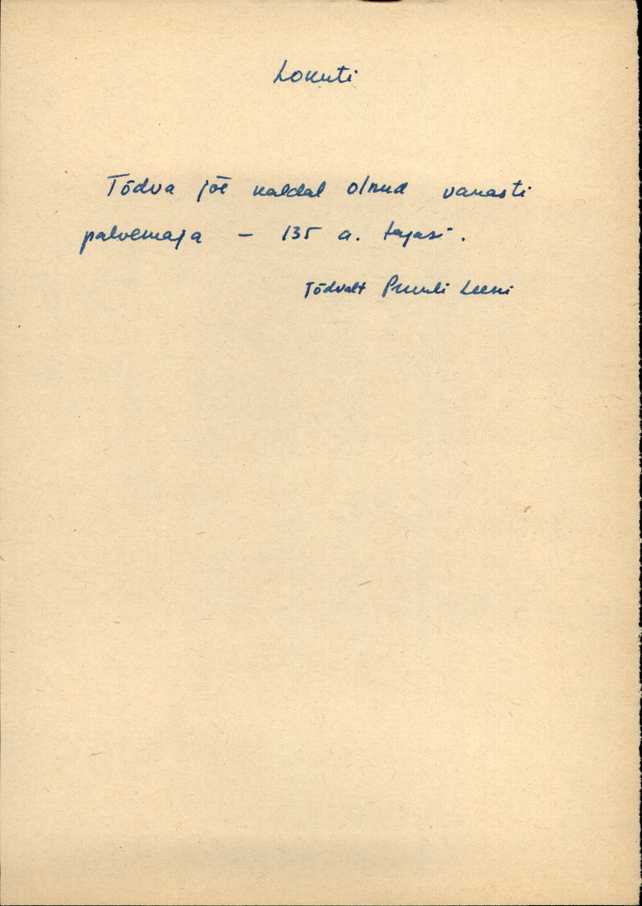 Lokuti
Tõdva jõe kaldal olnud vanasti
palvemaja - 135 a. tagasi.
Tõdvalt Leeni